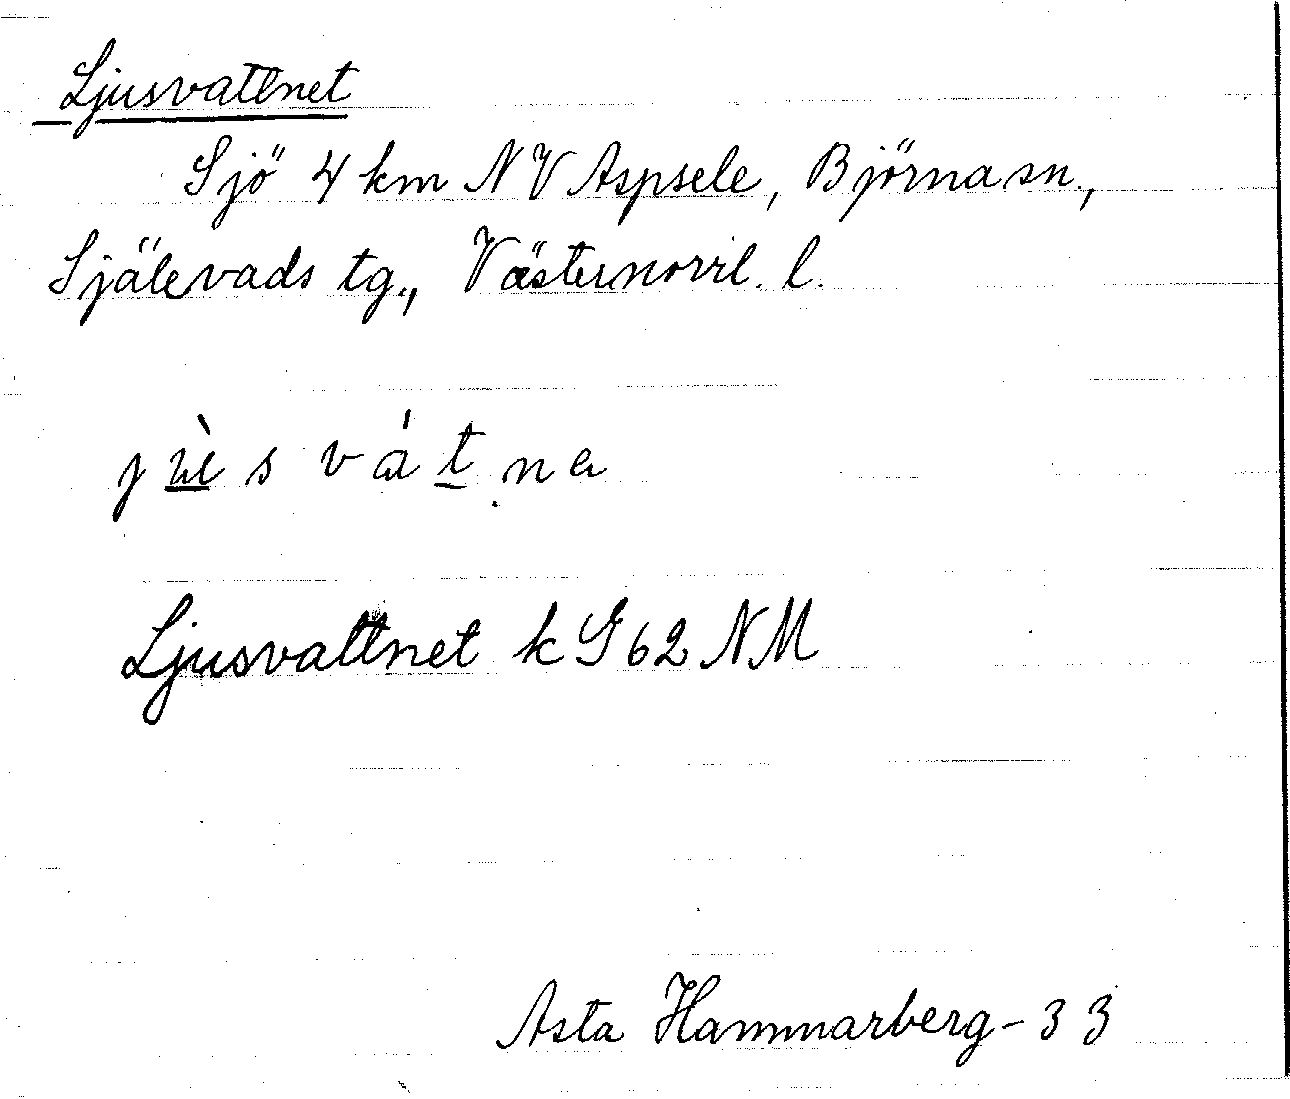 Ljusvattnet
Sjö 4 km NV Aspsele, Björna sn.,
Själevads tg., Västernorrl. l.
Ljusvattnet k G 62 NM
Asta Hammarberg - 33